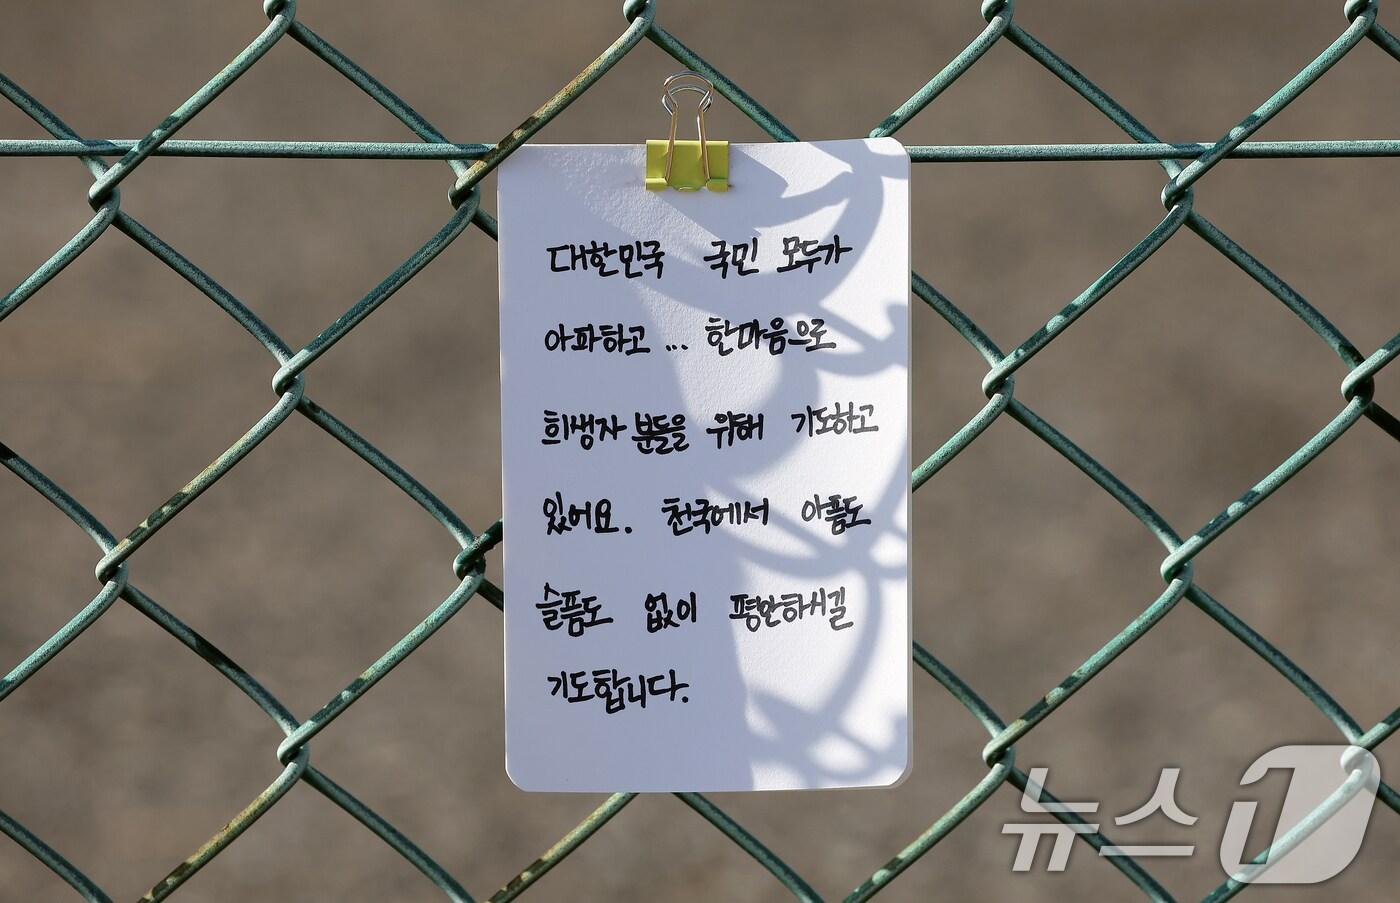 대한민국 국민 모두가
아파하고 ... 한마음으로
희생자분들을 위해 기도하고
있어요. 천국에서 아픔도
슬픔도 없이 평안하시길
기도합니다.
뉴스1